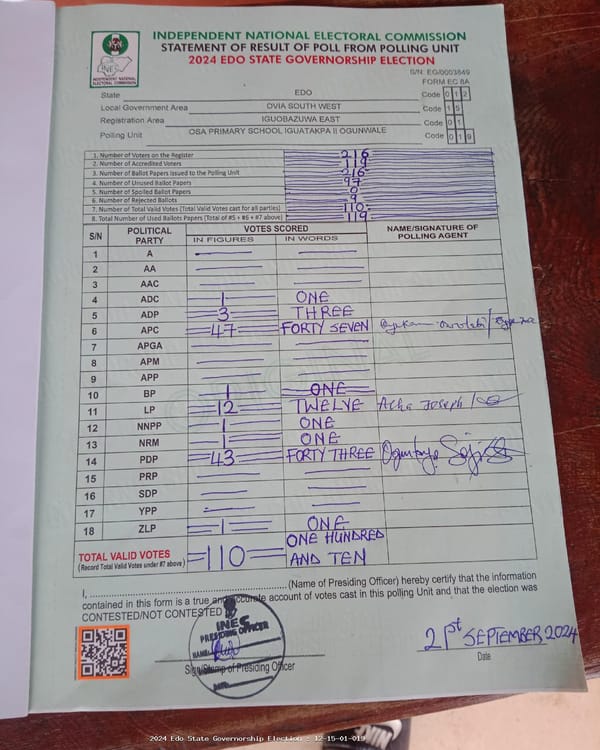 INDEPENDENT NATIONAL ELECTORAL COMMISSION
STATEMENT OF RESULT OF POLL FROM POLLING UNIT
2024 EDO STATE GOVERNORSHIP ELECTION
INEC
INDEPENDENT NATIONAL ELECTORAL COMMISSION
S/N: EG/0003849
FORM EC 8A
State EDO Code 0 1 2
Local Government Area OVIA SOUTH WEST Code 1 5
Registration Area IGUOBAZUWA EAST Code 0 1
Polling Unit OSA PRIMARY SCHOOL IGUATAKPA II OGUNWALE Code 0 1 9
1. Number of Voters on the Register 216
2. Number of Accredited Voters 119
3. Number of Ballot Papers Issued to the Polling Unit 216
4. Number of Unused Ballot Papers 97
5. Number of Spoiled Ballot Papers 0
6. Number of Rejected Ballots 9
7. Number of Total Valid Votes (Total Valid Votes cast for all parties) 110
8. Total Number of Used Ballots Papers (Total of #5 + #6 + #7 above) 119
S/N POLITICAL PARTY VOTES SCORED NAME/SIGNATURE OF POLLING AGENT
IN FIGURES IN WORDS
1 A
2 AA
3 AAC
4 ADC 1 ONE
5 ADP 3 THREE
6 APC 47 FORTY SEVEN
7 APGA
8 APM
9 APP
10 BP 1 ONE
11 LP 12 TWELVE Acha Joseph
12 NNPP 1 ONE
13 NRM 1 ONE
14 PDP 43 FORTY THREE
15 PRP
16 SDP
17 YPP
18 ZLP 1 ONE
TOTAL VALID VOTES =110= ONE HUNDRED AND TEN
(Record Total Valid Votes under #7 above)
I, .......................................... (Name of Presiding Officer) hereby certify that the information
contained in this form is a true and accurate account of votes cast in this polling Unit and that the election was
CONTESTED/NOT CONTESTED
INEC
PRESIDING OFFICER
NAME:
DATE:
Sign/Stamp of Presiding Officer
21st SEPTEMBER 2024
Date
2024 Edo State Governorship Election - 12-15-01-019